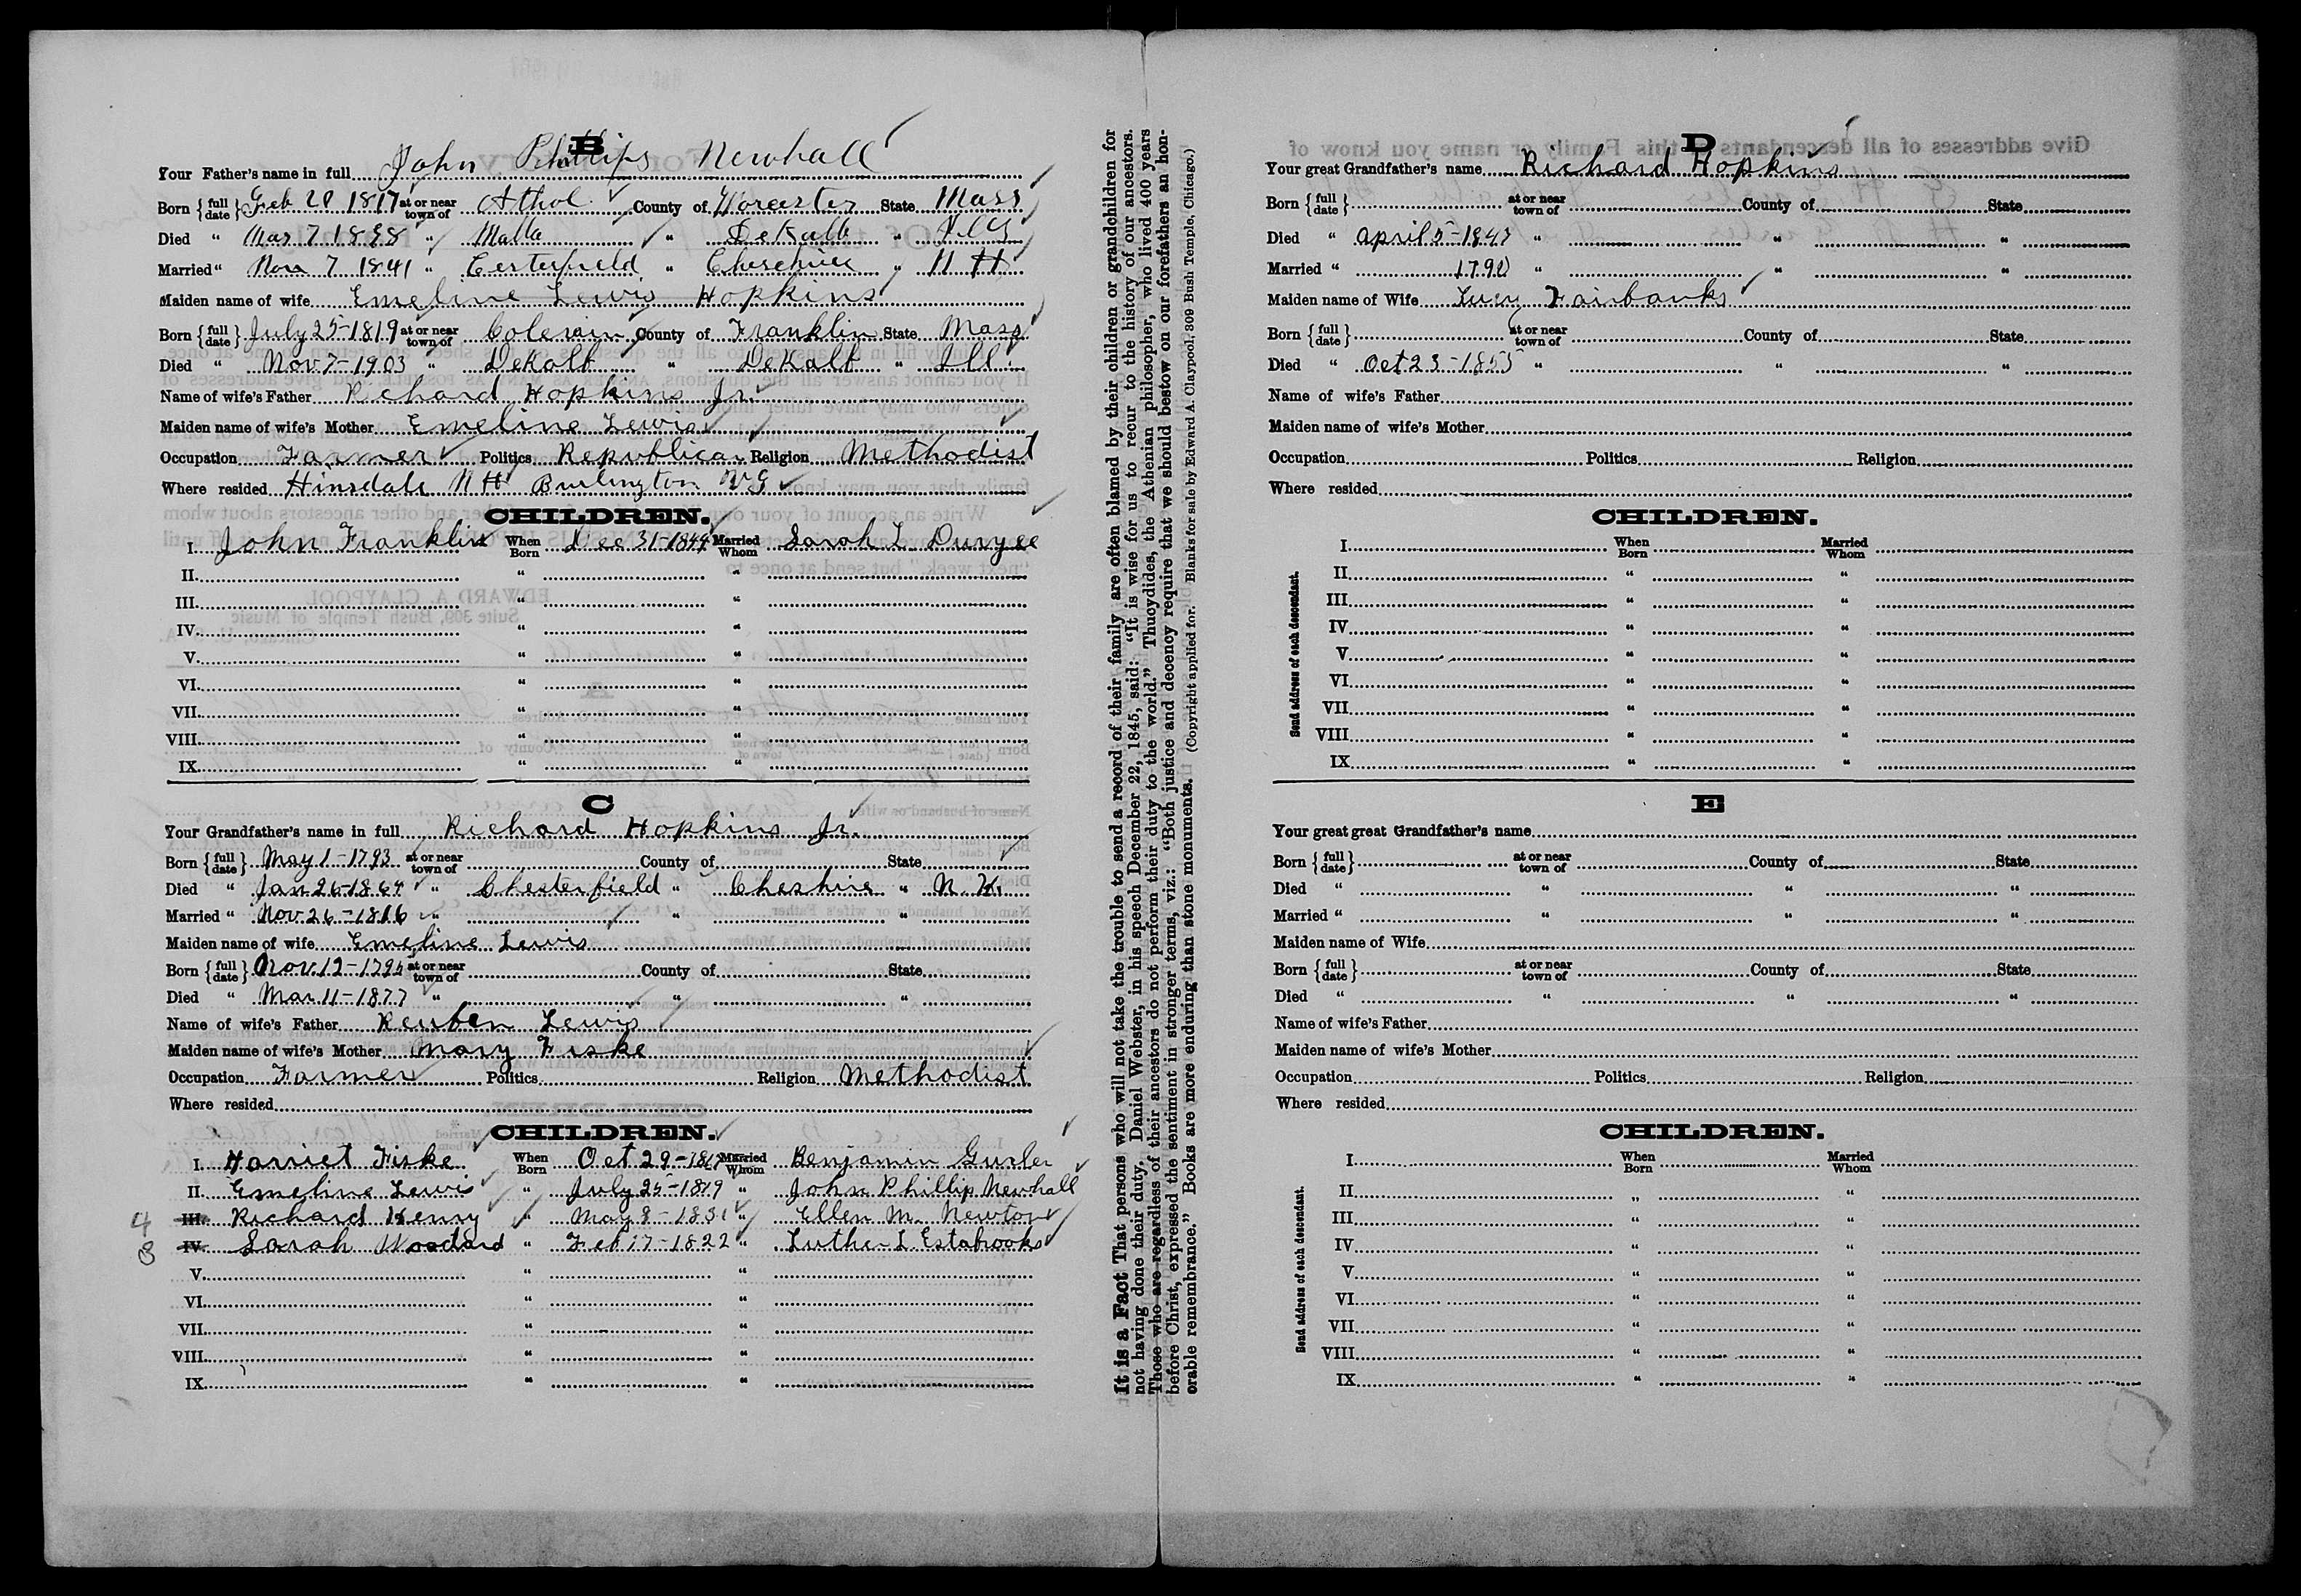 B
Your Father's name in full John Phillips Newhall
Born {full date} Feb 20 1817 at or near town of Athol County of Worcester State Mass
Died " Mar 7 1898 " Malta " DeKalb " Ills
Married " Nov 7 1841 " Cesterfield " Cheschire " N H
Maiden name of wife Emeline Lewis Hopkins
Born {full date} July 25-1819 at or near town of Colerain County of Franklin State Mass
Died " Nov 7-1903 " DeKalb " DeKalb " Ill.
Name of wife's Father Richard Hopkins Jr.
Maiden name of wife's Mother Emeline Lewis
Occupation Farmer Politics Republican Religion Methodist
Where resided Hinsdale N H Burlington
CHILDREN.
I. John Franklin When Born Dec 31-1844 Married Whom Sarah L Duryee
II. " "
III. " "
IV. " "
V. " "
VI. " "
VII. " "
VIII. " "
IX. " "
C
Your Grandfather's name in full Richard Hopkins Jr.
Born {full date} May 1-1793 at or near town of County of State
Died " Jan 26-1864 " Chesterfield " Cheshire " N. H.
Married " Nov 26-1816 " " "
Maiden name of wife Emeline Lewis
Born {full date} Nov. 12-1795 at or near town of County of State
Died " Mar 11-1877 " " "
Name of wife's Father Reuben Lewis
Maiden name of wife's Mother Mary Fiske
Occupation Farmer Politics Religion Methodist
Where resided
CHILDREN.
I. Harriet Fiske When Born Oct 29-1817 Married Whom Benjamin Gurler
II. Emeline Lewis " July 25-1819 " John Phillip Newhall
4 III. Richard Henry " May 8-1831 " Ellen M. Newton
3 IV. Sarah Woodard " Feb 17-1822 " Luther L Estabrooks
V. " "
VI. " "
VII. " "
VIII. " "
IX. " "
It is a Fact That persons who will not take the trouble to send a record of their family are often blamed by their children or grandchildren for
not having done their duty. Daniel Webster, in his speech December 22, 1845, said: "It is wise for us to recur to the history of our ancestors.
Those who are regardless of their ancestors do not perform their duty to the world." Thucydides, the Athenian philosopher, who lived 400 years
before Christ, expressed the sentiment in stronger terms, viz.: "Both justice and decency require that we should bestow on our forefathers an hon-
orable remembrance." Books are more enduring than stone monuments. (Copyright applied for. Blanks for sale by Edward A. Claypool, 309 Bush Temple, Chicago.)
D
Your great Grandfather's name Richard Hopkins
Born {full date} at or near town of County of State
Died " April 5-1847 " " "
Married " 1790 " " "
Maiden name of Wife Lucy Fairbanks
Born {full date} at or near town of County of State
Died " Oct 23-1855 " " "
Name of wife's Father
Maiden name of wife's Mother
Occupation Politics Religion
Where resided
CHILDREN.
Send address of each descendant.
I When Born Married Whom
II " "
III " "
IV " "
V " "
VI " "
VII " "
VIII " "
IX " "
E
Your great great Grandfather's name
Born {full date} at or near town of County of State
Died " " " "
Married " " " "
Maiden name of Wife
Born {full date} at or near town of County of State
Died " " " "
Name of wife's Father
Maiden name of wife's Mother
Occupation Politics Religion
Where resided
CHILDREN.
Send address of each descendant.
I When Born Married Whom
II " "
III " "
IV " "
V " "
VI " "
VII " "
VIII " "
IX " "